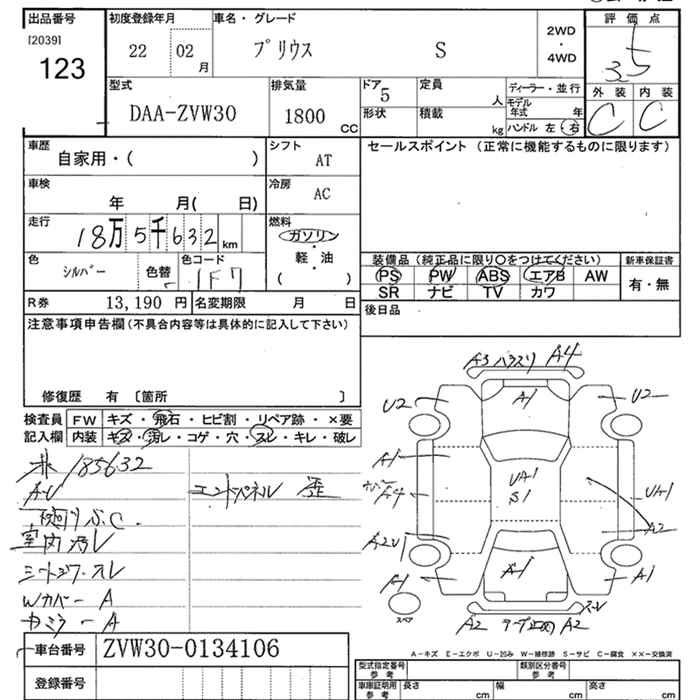 出品番号 初度登録年月 車名・グレード 評価点
[2039] 22 02 月 プリウス S 2WD・4WD 3.5
123
型式 排気量 ドア 定員 ディーラー・並行 外装 内装
DAA-ZVW30 1800 CC 5 人 モデル年式 年 C C
形状 積載 kg ハンドル 左・右
車歴 自家用・( ) シフト AT セールスポイント (正常に機能するものに限ります)
車検 年 月( 日) 冷房 AC
走行 18万5千632 km 燃料 ガソリン
軽・油
( )
色 シルバー 色替 色コード 1F7
装備品(純正品に限り○をつけてください) 新車保証書
PS PW ABS エアB AW 有・無
SR ナビ TV カワ
R券 13,190 円 名変期限 月 日 後日品
注意事項申告欄(不具合内容等は具体的に記入して下さい)
修復歴 有 〔箇所 〕
検査員記入欄 FW キズ・飛石・ヒビ割・リペア跡・×要
内装 キズ・汚レ・コゲ・穴・スレ・キレ・破レ
185632
エンドパネル 歪
室内汚レ
Wカバー A
カミラー A
A3 A4
A1
U2 U2
A1
A4
UA1
S1
UA1
A2
A2U1
A1
A1 A1
A2 A2
スペア
A-キズ E-エクボ U-凹み W-補修跡 S-サビ C-腐食 ××-交換済
車台番号 ZVW30-0134106
登録番号
型式指定番号 参考 類別区分番号 参考
車庫証明用 参考 長さ cm 幅 cm 高さ cm